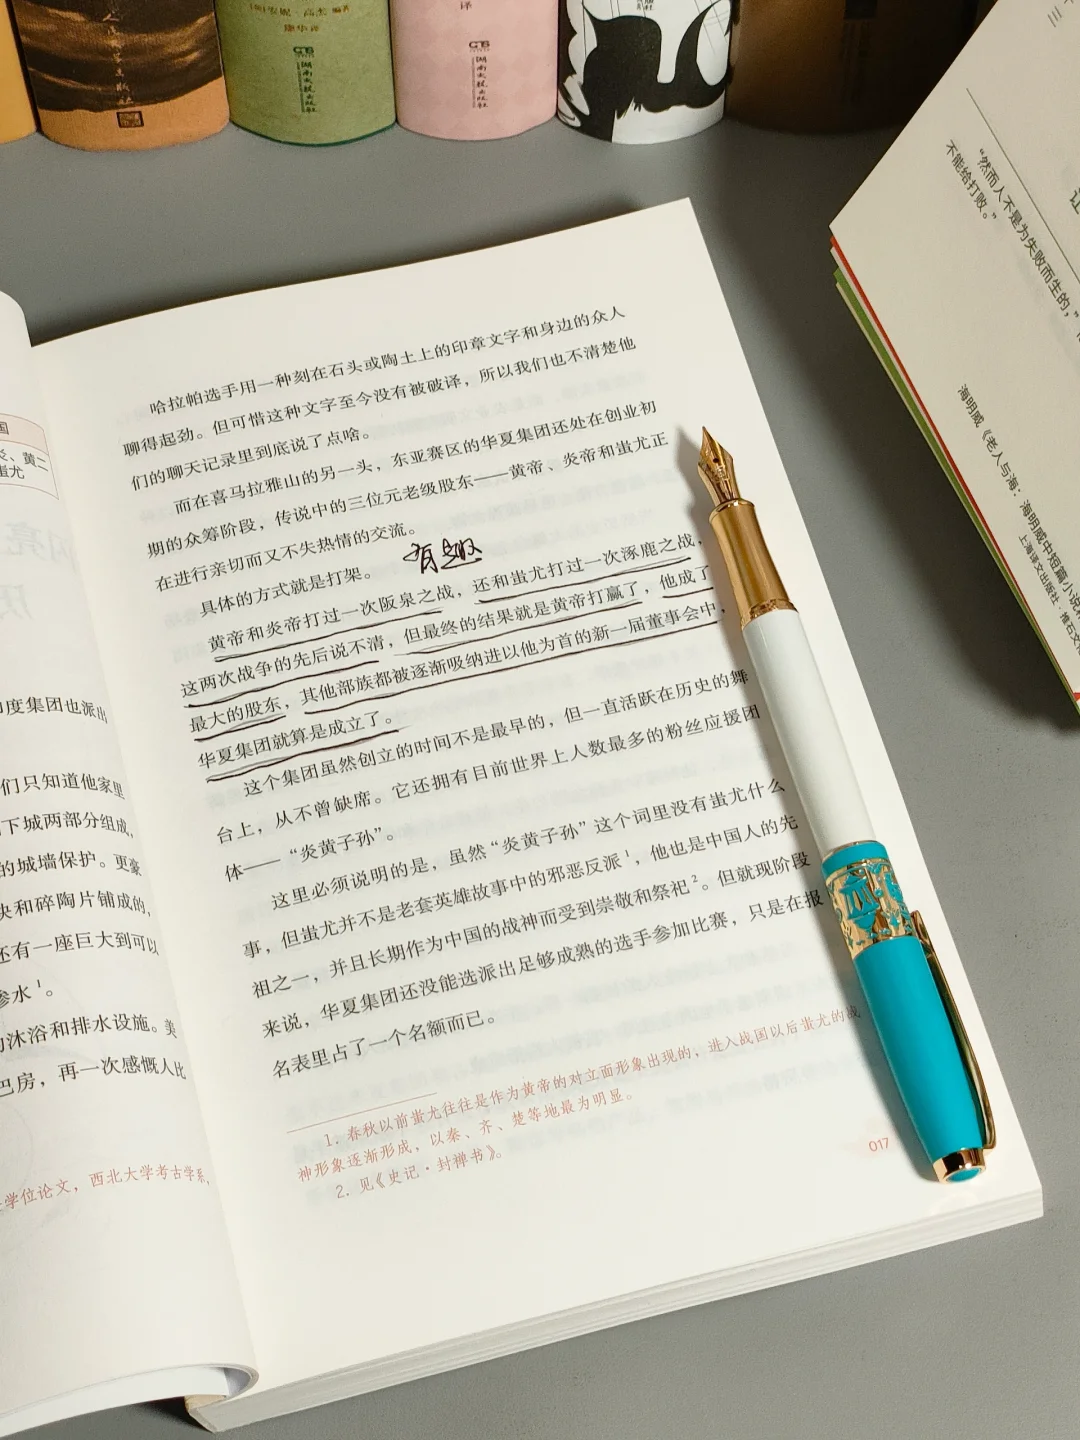 康华译
湖南文艺出版社
译
湖南文艺出版社
“然而人不是为失败而生的,”
不能给打败。”
让
海明威《老人与海:海明威中短篇小说
上海译文出版社
国
黄二
蚩尤
印度集团也派出
们只知道他家里
下城两部分组成,
的城墙保护。更豪
块和碎陶片铺成的,
还有一座巨大到可以
渗水1。
沐浴和排水设施。美
巴房,再一次感慨人比
学位论文,西北大学考古学系,
哈拉帕选手用一种刻在石头或陶土上的印章文字和身边的众人
聊得起劲。但可惜这种文字至今没有被破译,所以我们也不清楚他
们的聊天记录里到底说了点啥。
而在喜马拉雅山的另一头,东亚赛区的华夏集团还处在创业初
期的众筹阶段,传说中的三位元老级股东——黄帝、炎帝和蚩尤正
在进行亲切而又不失热情的交流。
具体的方式就是打架。
有趣
黄帝和炎帝打过一次阪泉之战,还和蚩尤打过一次涿鹿之战,
这两次战争的先后说不清,但最终的结果就是黄帝打赢了,他成了
最大的股东,其他部族都被逐渐吸纳进以他为首的新一届董事会中,
华夏集团就算是成立了。
这个集团虽然创立的时间不是最早的,但一直活跃在历史的舞
台上,从不曾缺席。它还拥有目前世界上人数最多的粉丝应援团
体——“炎黄子孙”。
这里必须说明的是,虽然“炎黄子孙”这个词里没有蚩尤什么
事,但蚩尤并不是老套英雄故事中的邪恶反派1,他也是中国人的先
祖之一,并且长期作为中国的战神而受到崇敬和祭祀2。但就现阶段
来说,华夏集团还没能选派出足够成熟的选手参加比赛,只是在报
名表里占了一个名额而已。
1. 春秋以前蚩尤往往是作为黄帝的对立面形象出现的,进入战国以后蚩尤的战
神形象逐渐形成,以秦、齐、楚等地最为明显。
2. 见《史记·封禅书》。
017